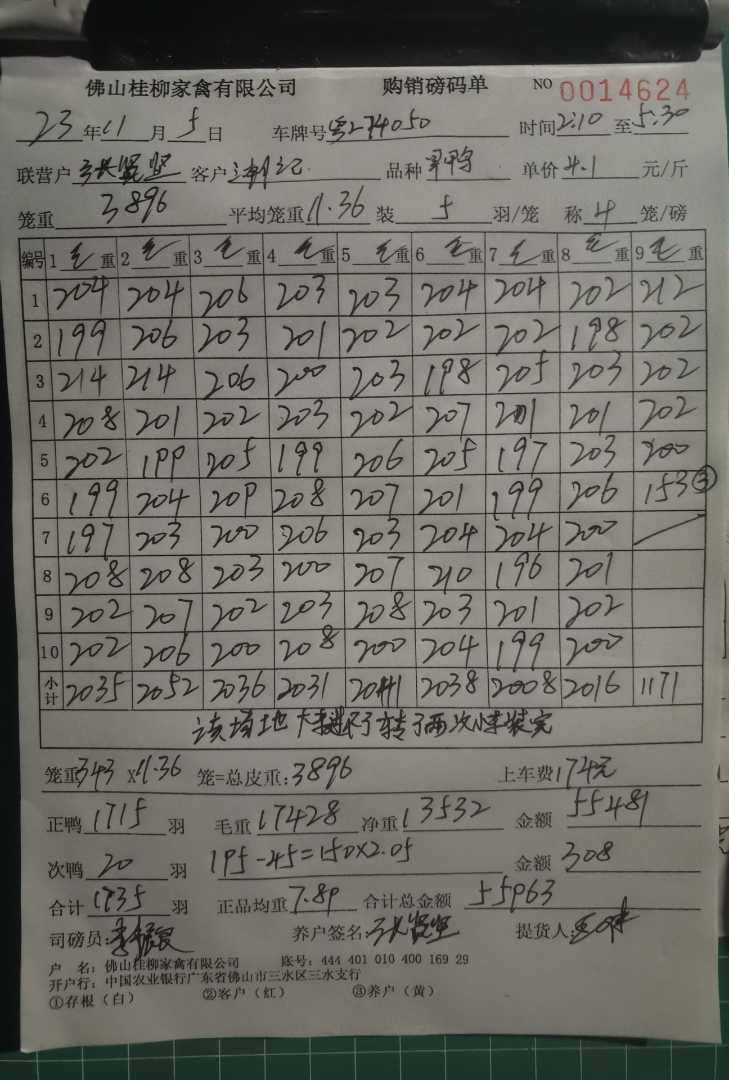 佛山桂柳家禽有限公司 购销磅码单 NO 0014624
23年11月5日 车牌号 274050 时间2:10至5:30
联营户 张贤坚 客户 品种 单价4.1元/斤
笼重3896 平均笼重11.36 装5羽/笼 称4笼/磅
编号 1毛重 2毛重 3毛重 4毛重 5毛重 6毛重 7毛重 8毛重 9毛重
1 204 204 206 203 203 204 204 202 212
2 199 206 203 201 202 202 202 198 202
3 214 214 206 200 203 198 205 203 202
4 208 201 202 203 202 207 201 201 202
5 202 199 205 199 206 205 197 203 200
6 199 204 209 208 207 201 199 206 153③
7 197 203 200 206 203 204 204 200
8 208 208 203 200 207 210 196 201
9 202 207 202 203 208 203 201 202
10 202 206 200 208 200 204 199 200
小计 2035 2052 2036 2031 2041 2038 2008 2016 1171
该场地大车进不了转了两次小车装完
笼重343×11.36笼=总皮重:3896 上车费174元
正鸭1715羽 毛重17428 净重13532 金额55481
次鸭20羽 195-45=150×2.05 金额308
合计1735羽 正品均重7.89 合计总金额55963
司磅员: 养户签名:张贤坚 提货人:
户 名:佛山桂柳家禽有限公司 账号:444 401 010 400 169 29
开户行:中国农业银行广东省佛山市三水区三水支行
①存根(白) ②客户(红) ③养户(黄)